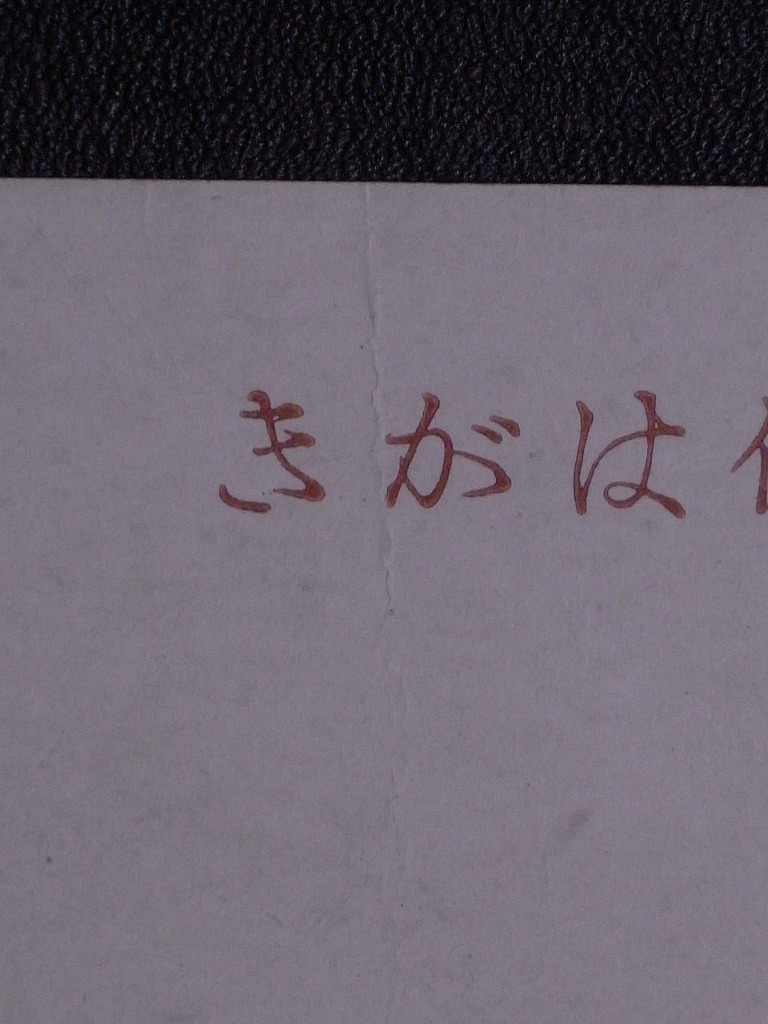 きがは